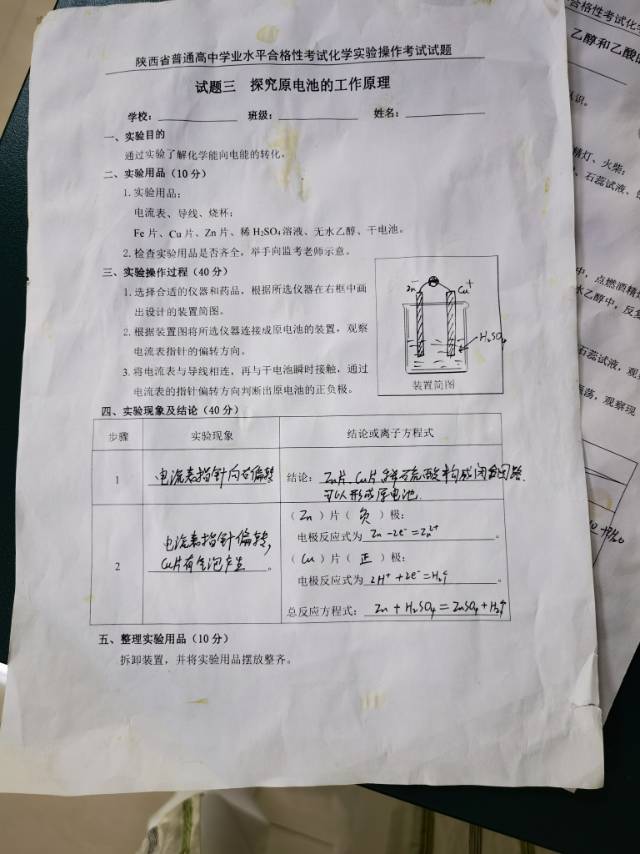 陕西省普通高中学业水平合格性考试化学实验操作考试试题
试题三 探究原电池的工作原理
学校： 班级： 姓名：
一、实验目的
通过实验了解化学能向电能的转化。
二、实验用品（10 分）
1. 实验用品：
电流表、导线、烧杯；
Fe 片、Cu 片、Zn 片、稀 H₂SO₄ 溶液、无水乙醇、干电池。
2. 检查实验用品是否齐全，举手向监考老师示意。
三、实验操作过程（40 分）
1. 选择合适的仪器和药品，根据所选仪器在右框中画
出设计的装置简图。
2. 根据装置图将所选仪器连接成原电池的装置，观察
电流表指针的偏转方向。
3. 将电流表与导线相连，再与干电池瞬时接触，通过
电流表的指针偏转方向判断出原电池的正负极。
Zn⁻ Cu⁺
H₂SO₄
装置简图
四、实验现象及结论（40 分）
步骤 实验现象 结论或离子方程式
1 电流表指针向右偏转 结论：Zn片、Cu片、稀硫酸构成闭合回路
可以形成原电池.
（Zn）片（负）极：
电极反应式为 Zn-2e⁻=Zn²⁺。
2 电流表指针偏转,
Cu片有气泡产生。
（Cu）片（正）极：
电极反应式为 2H⁺+2e⁻=H₂↑。
总反应方程式：Zn+H₂SO₄=ZnSO₄+H₂↑
五、整理实验用品（10 分）
拆卸装置，并将实验用品摆放整齐。
合格性考试化
乙醇和乙酸
精灯、火柴；
石蕊试液、
点燃酒精
水乙醇中，反复
石蕊试液，观
荡，观察现